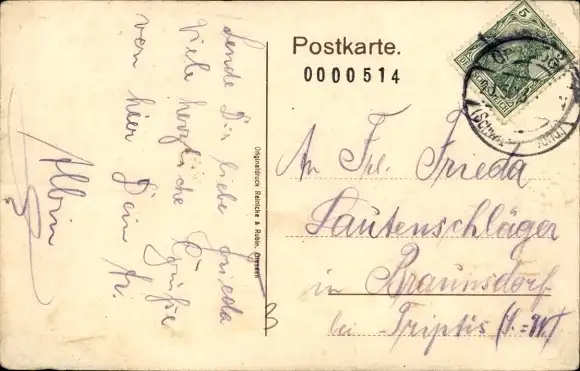 Postkarte.
0000514
An Frl. Frieda
Lautenschläger
in Braunsdorf
bei Triptis (S.=W.)
Sende Dir liebe Frieda
viele herzliche Grüße
von hier Dein Fr.
Albin
Originaldruck Reinicke & Rubin, Dresden
5